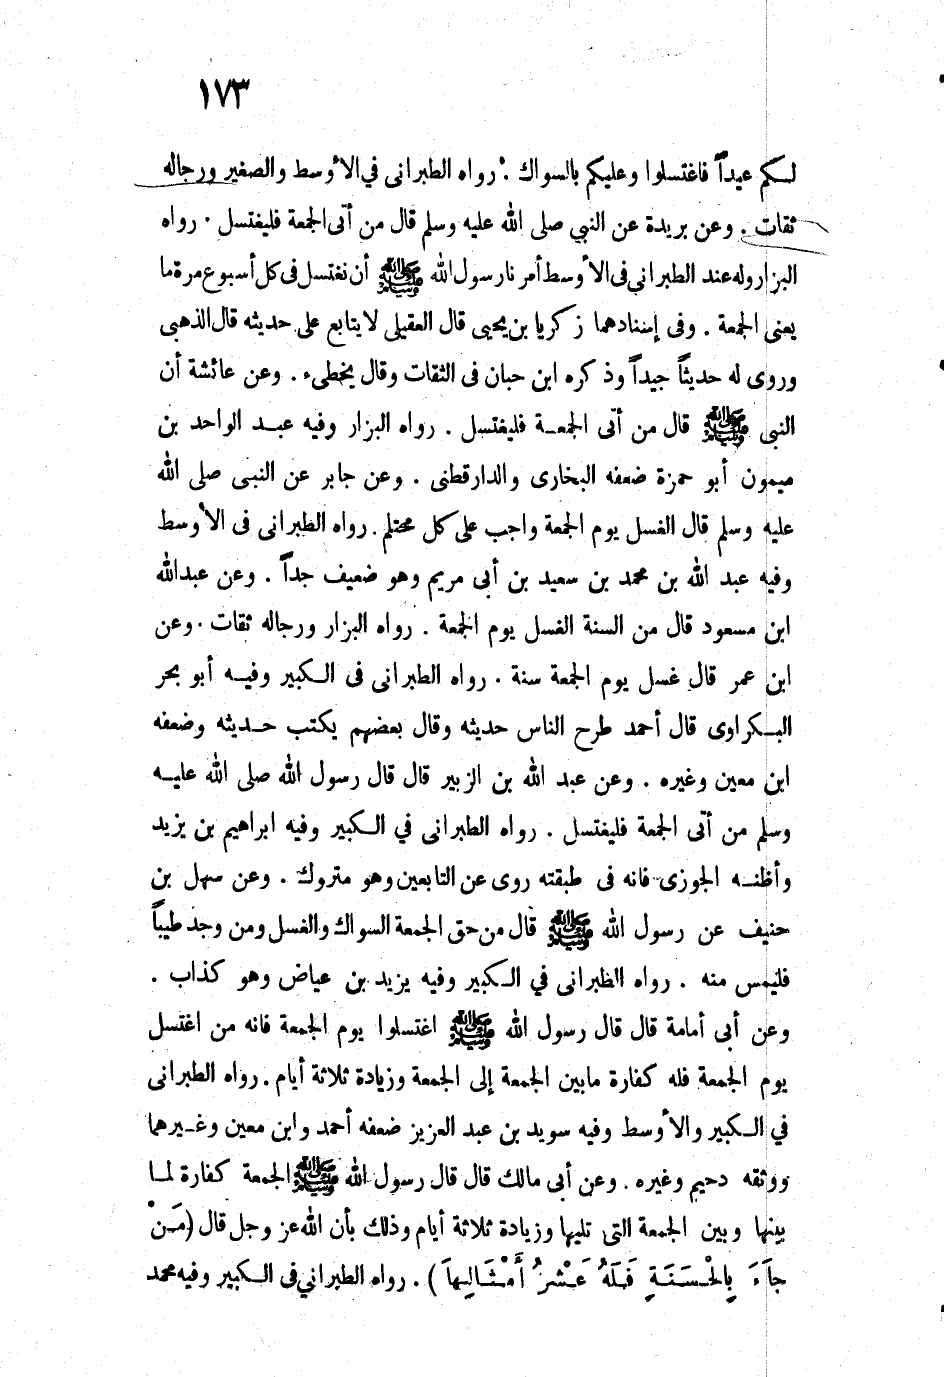 ١٧٣
لكم عيداً فاغتسلوا وعليكم بالسواك . رواه الطبرانى في الأوسط والصغير ورجاله
ثقات . وعن بريدة عن النبي صلى الله عليه وسلم قال من أتى الجمعة فليغتسل . رواه
البزار وله عند الطبراني فى الأوسط أمرنا رسول الله ﷺ أن نغتسل فى كل أسبوع مرة ما
يعنى الجمعة . وفى إسنادهما زكريا بن يحيى قال العقيلى لا يتابع على حديثه قال الذهبى
وروى له حديثاً جيداً وذكره ابن حبان فى الثقات وقال يخطىء . وعن عائشة أن
النبى ﷺ قال من أتى الجمعة فليغتسل . رواه البزار وفيه عبد الواحد بن
ميمون أبو حمزة ضعفه البخارى والدارقطنى . وعن جابر عن النبى صلى الله
عليه وسلم قال الغسل يوم الجمعة واجب على كل محتلم . رواه الطبرانى فى الأوسط
وفيه عبد الله بن محمد بن سعيد بن أبى مريم وهو ضعيف جداً . وعن عبدالله
ابن مسعود قال من السنة الغسل يوم الجمعة . رواه البزار ورجاله ثقات . وعن
ابن عمر قال غسل يوم الجمعة سنة . رواه الطبرانى فى الكبير وفيه أبو بحر
البكراوى قال أحمد طرح الناس حديثه وقال بعضهم يكتب حديثه وضعفه
ابن معين وغيره . وعن عبد الله بن الزبير قال قال رسول الله صلى الله عليه
وسلم من أتى الجمعة فليغتسل . رواه الطبرانى في الكبير وفيه ابراهيم بن يزيد
وأظنه الجوزى فانه فى طبقته روى عن التابعين وهو متروك . وعن سهل بن
حنيف عن رسول الله ﷺ قال من حق الجمعة السواك والغسل ومن وجد طيباً
فليمس منه . رواه الطبرانى في الكبير وفيه يزيد بن عياض وهو كذاب .
وعن أبى أمامة قال قال رسول الله ﷺ اغتسلوا يوم الجمعة فانه من اغتسل
يوم الجمعة فله كفارة مابين الجمعة إلى الجمعة وزيادة ثلاثة أيام . رواه الطبرانى
في الكبير والأوسط وفيه سويد بن عبد العزيز ضعفه أحمد وابن معين وغيرهما
ووثقه دحيم وغيره . وعن أبى مالك قال قال رسول الله ﷺ الجمعة كفارة لما
بينها وبين الجمعة التى تليها وزيادة ثلاثة أيام وذلك بأن الله عز وجل قال (مَنْ
جَاءَ بِالْحَسَنَةِ فَلَهُ عَشْرُ أَمْثَالِهاَ) . رواه الطبراني فى الكبير وفيه محمد